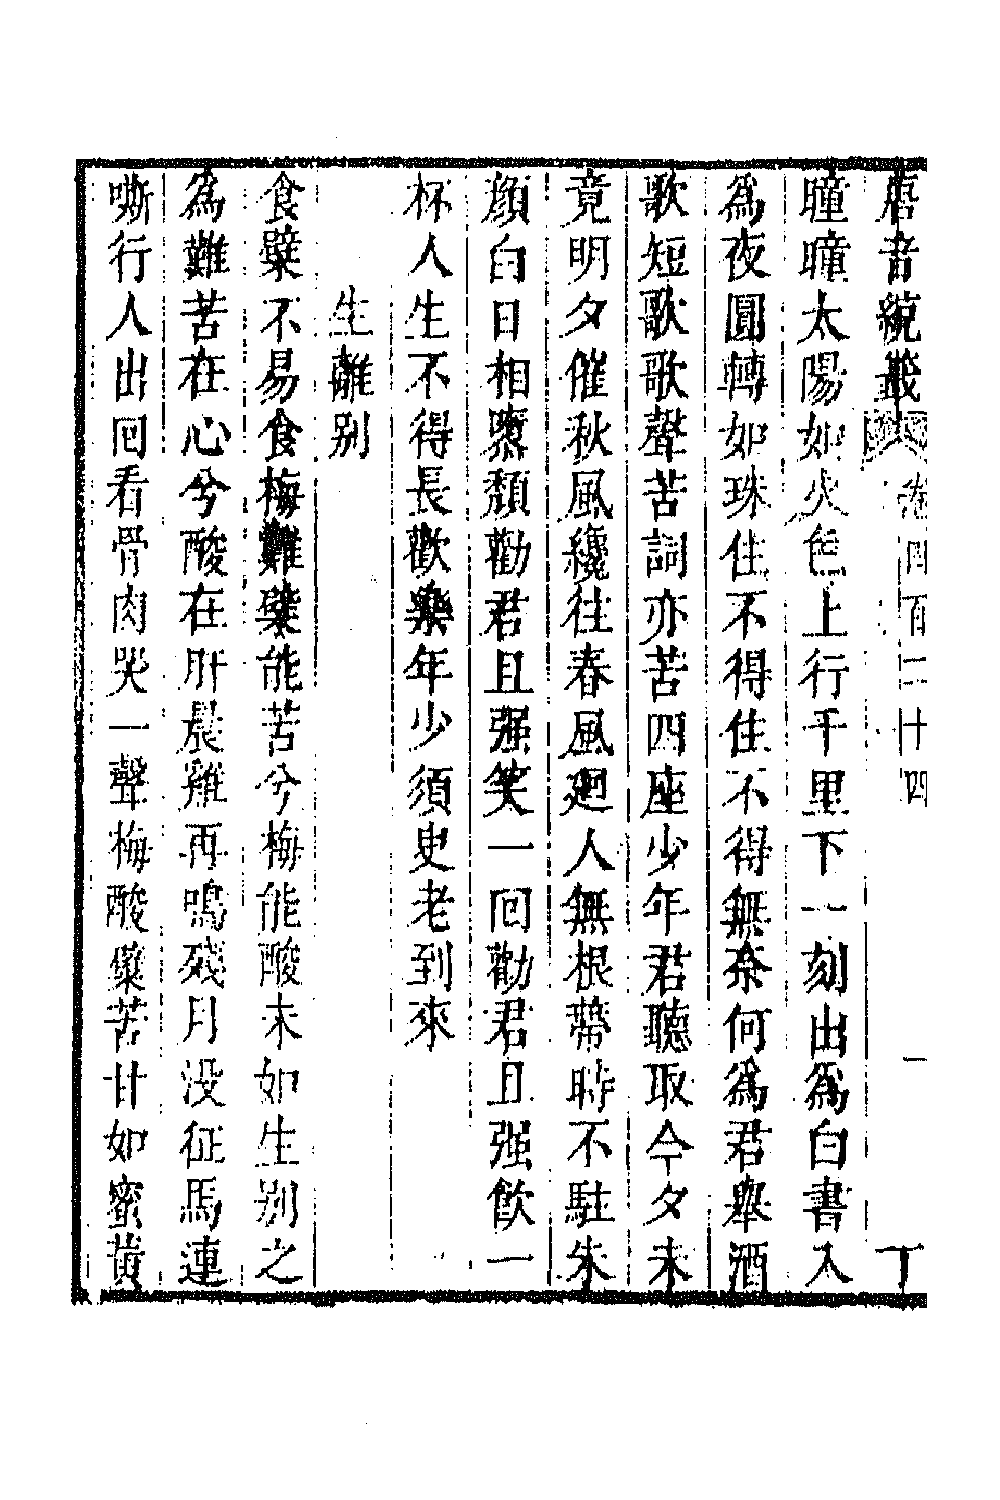 唐音統籖 卷四百二十四 一 丁
曈曈太陽如火色上行千里下一刻出爲白晝入
爲夜圓轉如珠住不得住不得無奈何爲君舉酒
歌短歌歌聲苦詞亦苦四座少年君聽取今夕未
竟明夕催秋風纔往春風廻人無根蔕時不駐朱
顔白日相隳頽勸君且强笑一回勸君且强飲一
杯人生不得長歡樂年少須臾老到來
生離别
食蘗不易食梅難蘗能苦兮梅能酸未如生别之
爲難苦在心兮酸在肝晨雞再鳴殘月没征馬連
嘶行人出回看骨肉哭一聲梅酸蘗苦甘如蜜黄